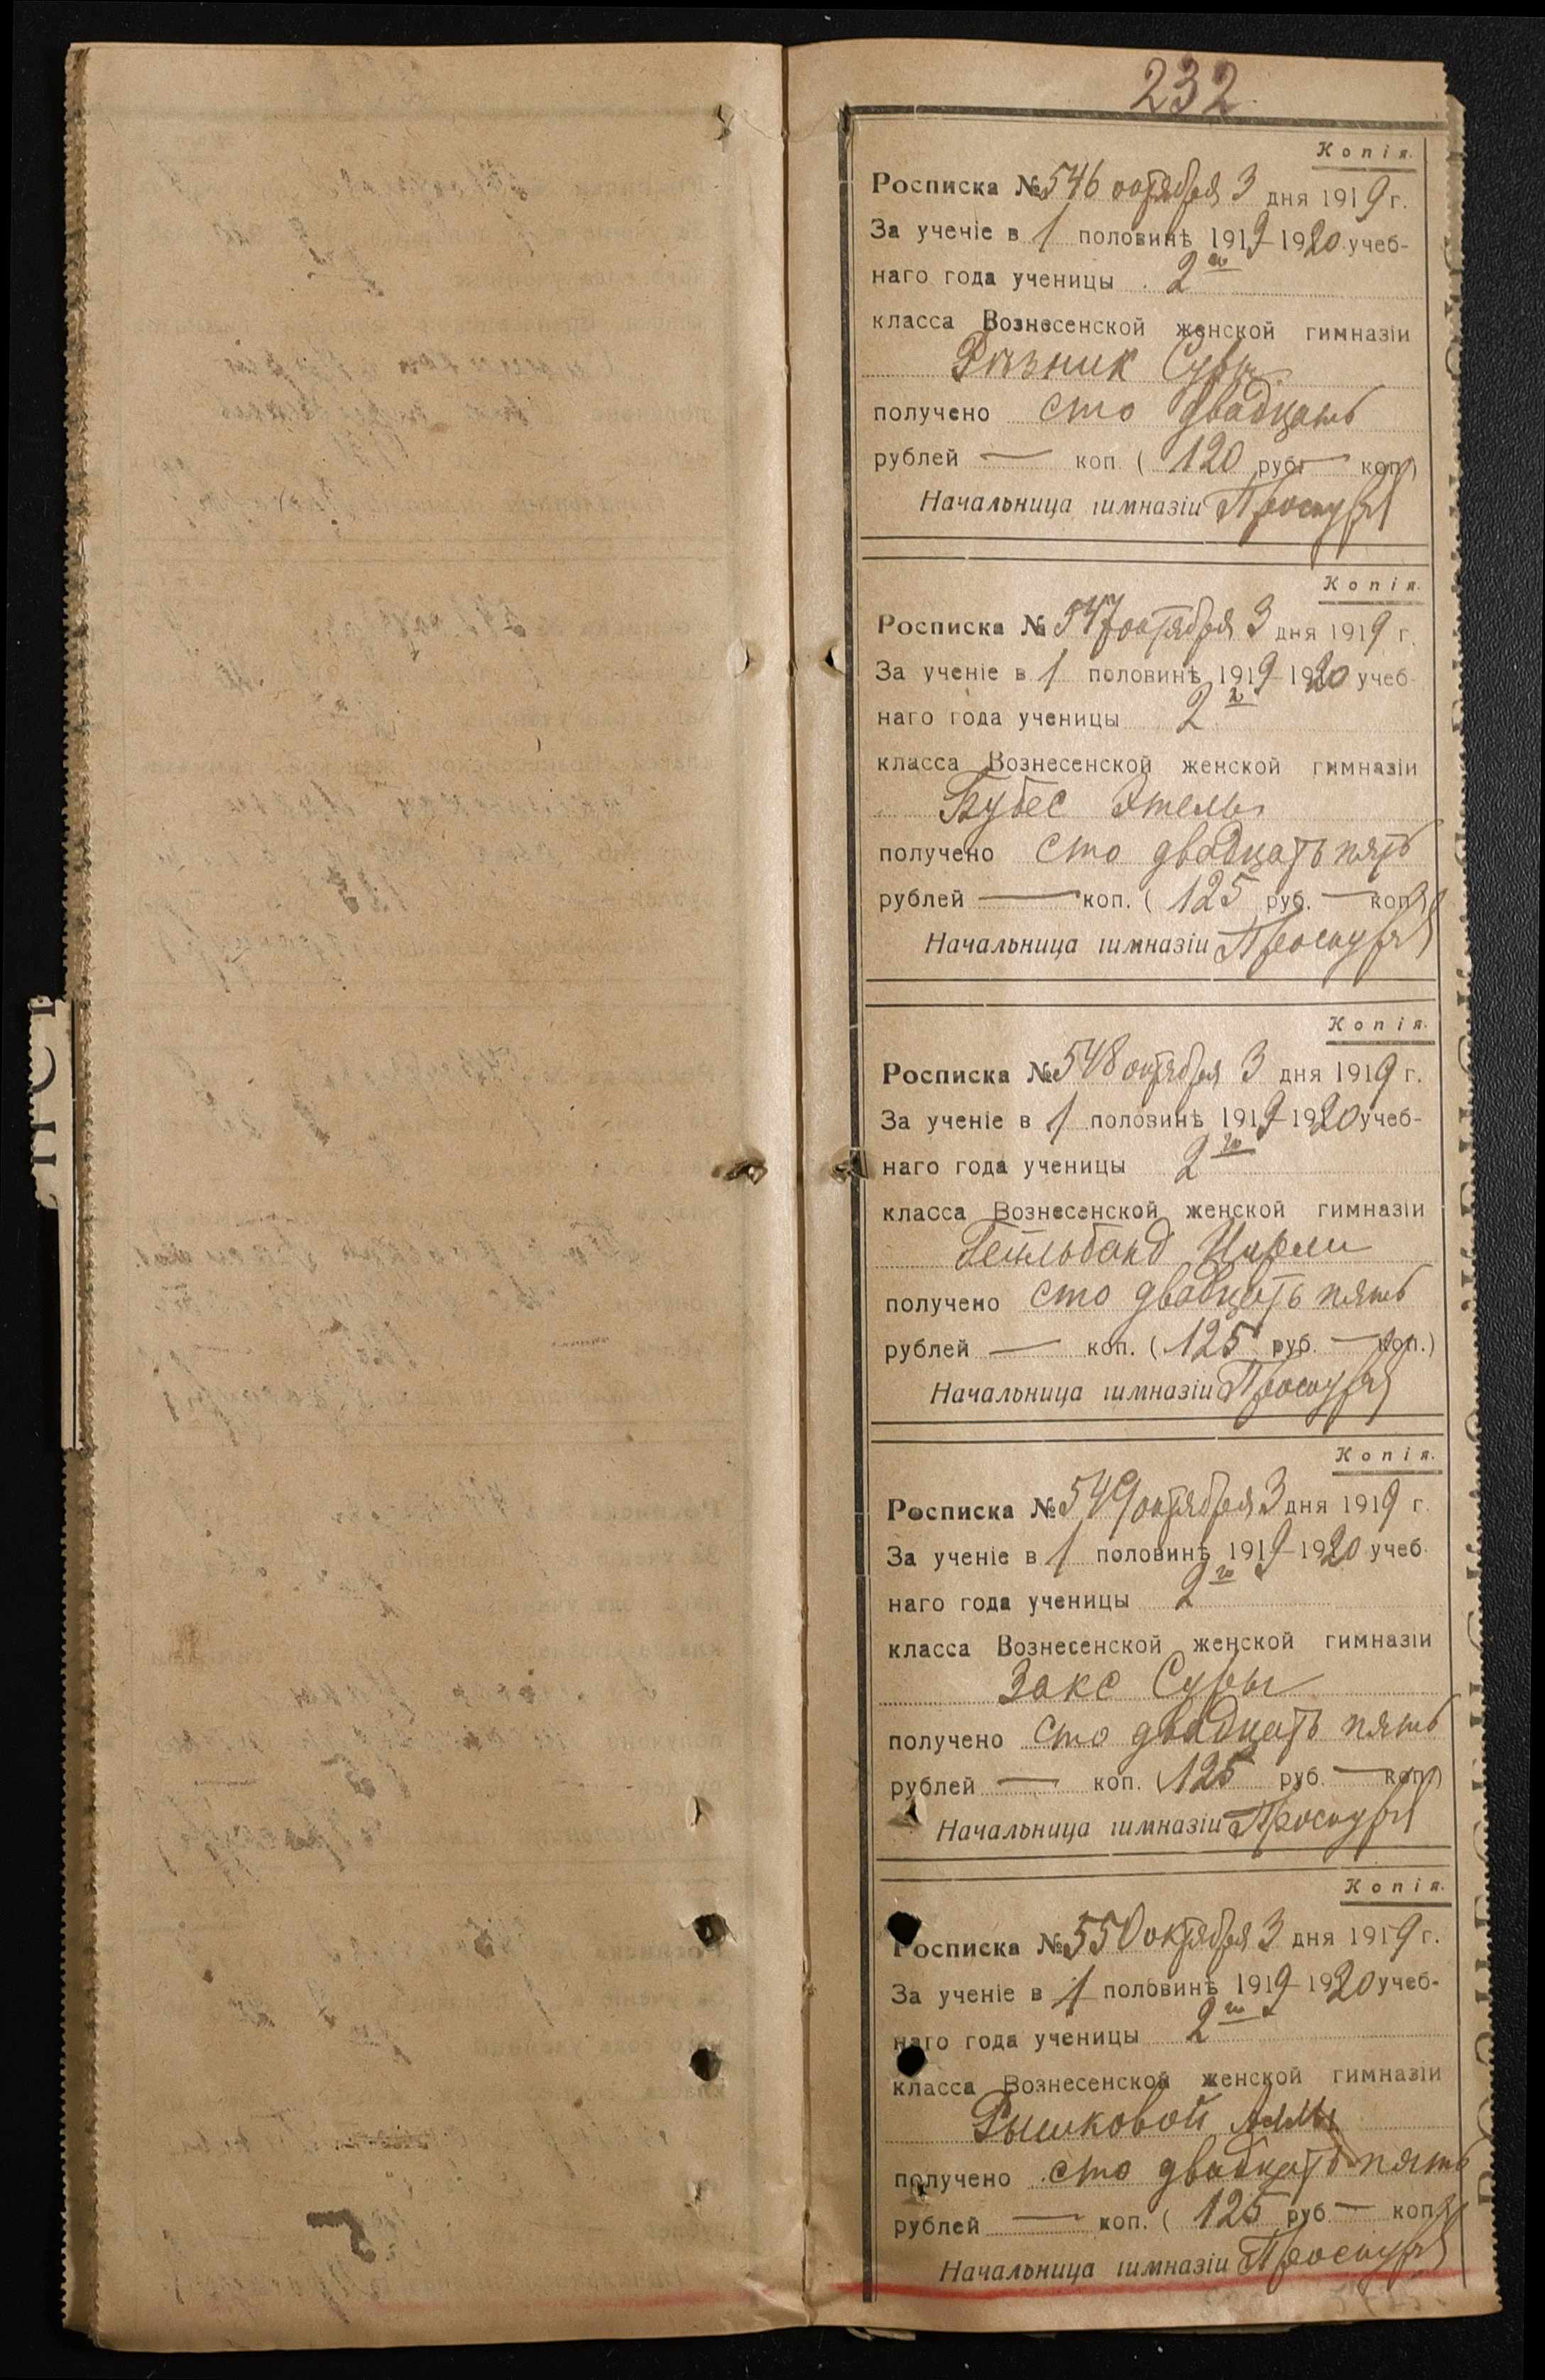 232
Копія.
Росписка № 546 октября 3 дня 1919 г.
За ученіе в 1 половинѣ 1919-1920 учеб-
наго года ученицы 2го
класса Вознесенской женской гимназіи
Рѣзник Суры
получено сто двадцать
рублей — коп. (120 руб. — коп.)
Начальница гимназіи
Копія.
Росписка № 547 октября 3 дня 1919 г.
За ученіе в 1 половинѣ 1919-1920 учеб-
наго года ученицы 2го
класса Вознесенской женской гимназіи
Бубес Этель
получено сто двадцать пять
рублей — коп. (125 руб. — коп.)
Начальница гимназіи
Копія.
Росписка № 548 октября 3 дня 1919 г.
За ученіе в 1 половинѣ 1919-1920 учеб-
наго года ученицы 2го
класса Вознесенской женской гимназіи
получено сто двадцать пять
рублей — коп. (125 руб. — коп.)
Начальница гимназіи
Копія.
Росписка № 549 октября 3 дня 1919 г.
За ученіе в 1 половинѣ 1919-1920 учеб-
наго года ученицы 2го
класса Вознесенской женской гимназіи
Закс Суры
получено сто двадцать пять
рублей — коп. (125 руб. — коп.)
Начальница гимназіи
Копія.
Росписка № 550 октября 3 дня 1919 г.
За ученіе в 1 половинѣ 1919-1920 учеб-
наго года ученицы 2го
класса Вознесенской женской гимназіи
Рышковой
получено сто двадцать пять
рублей — коп. (125 руб. — коп.)
Начальница гимназіи